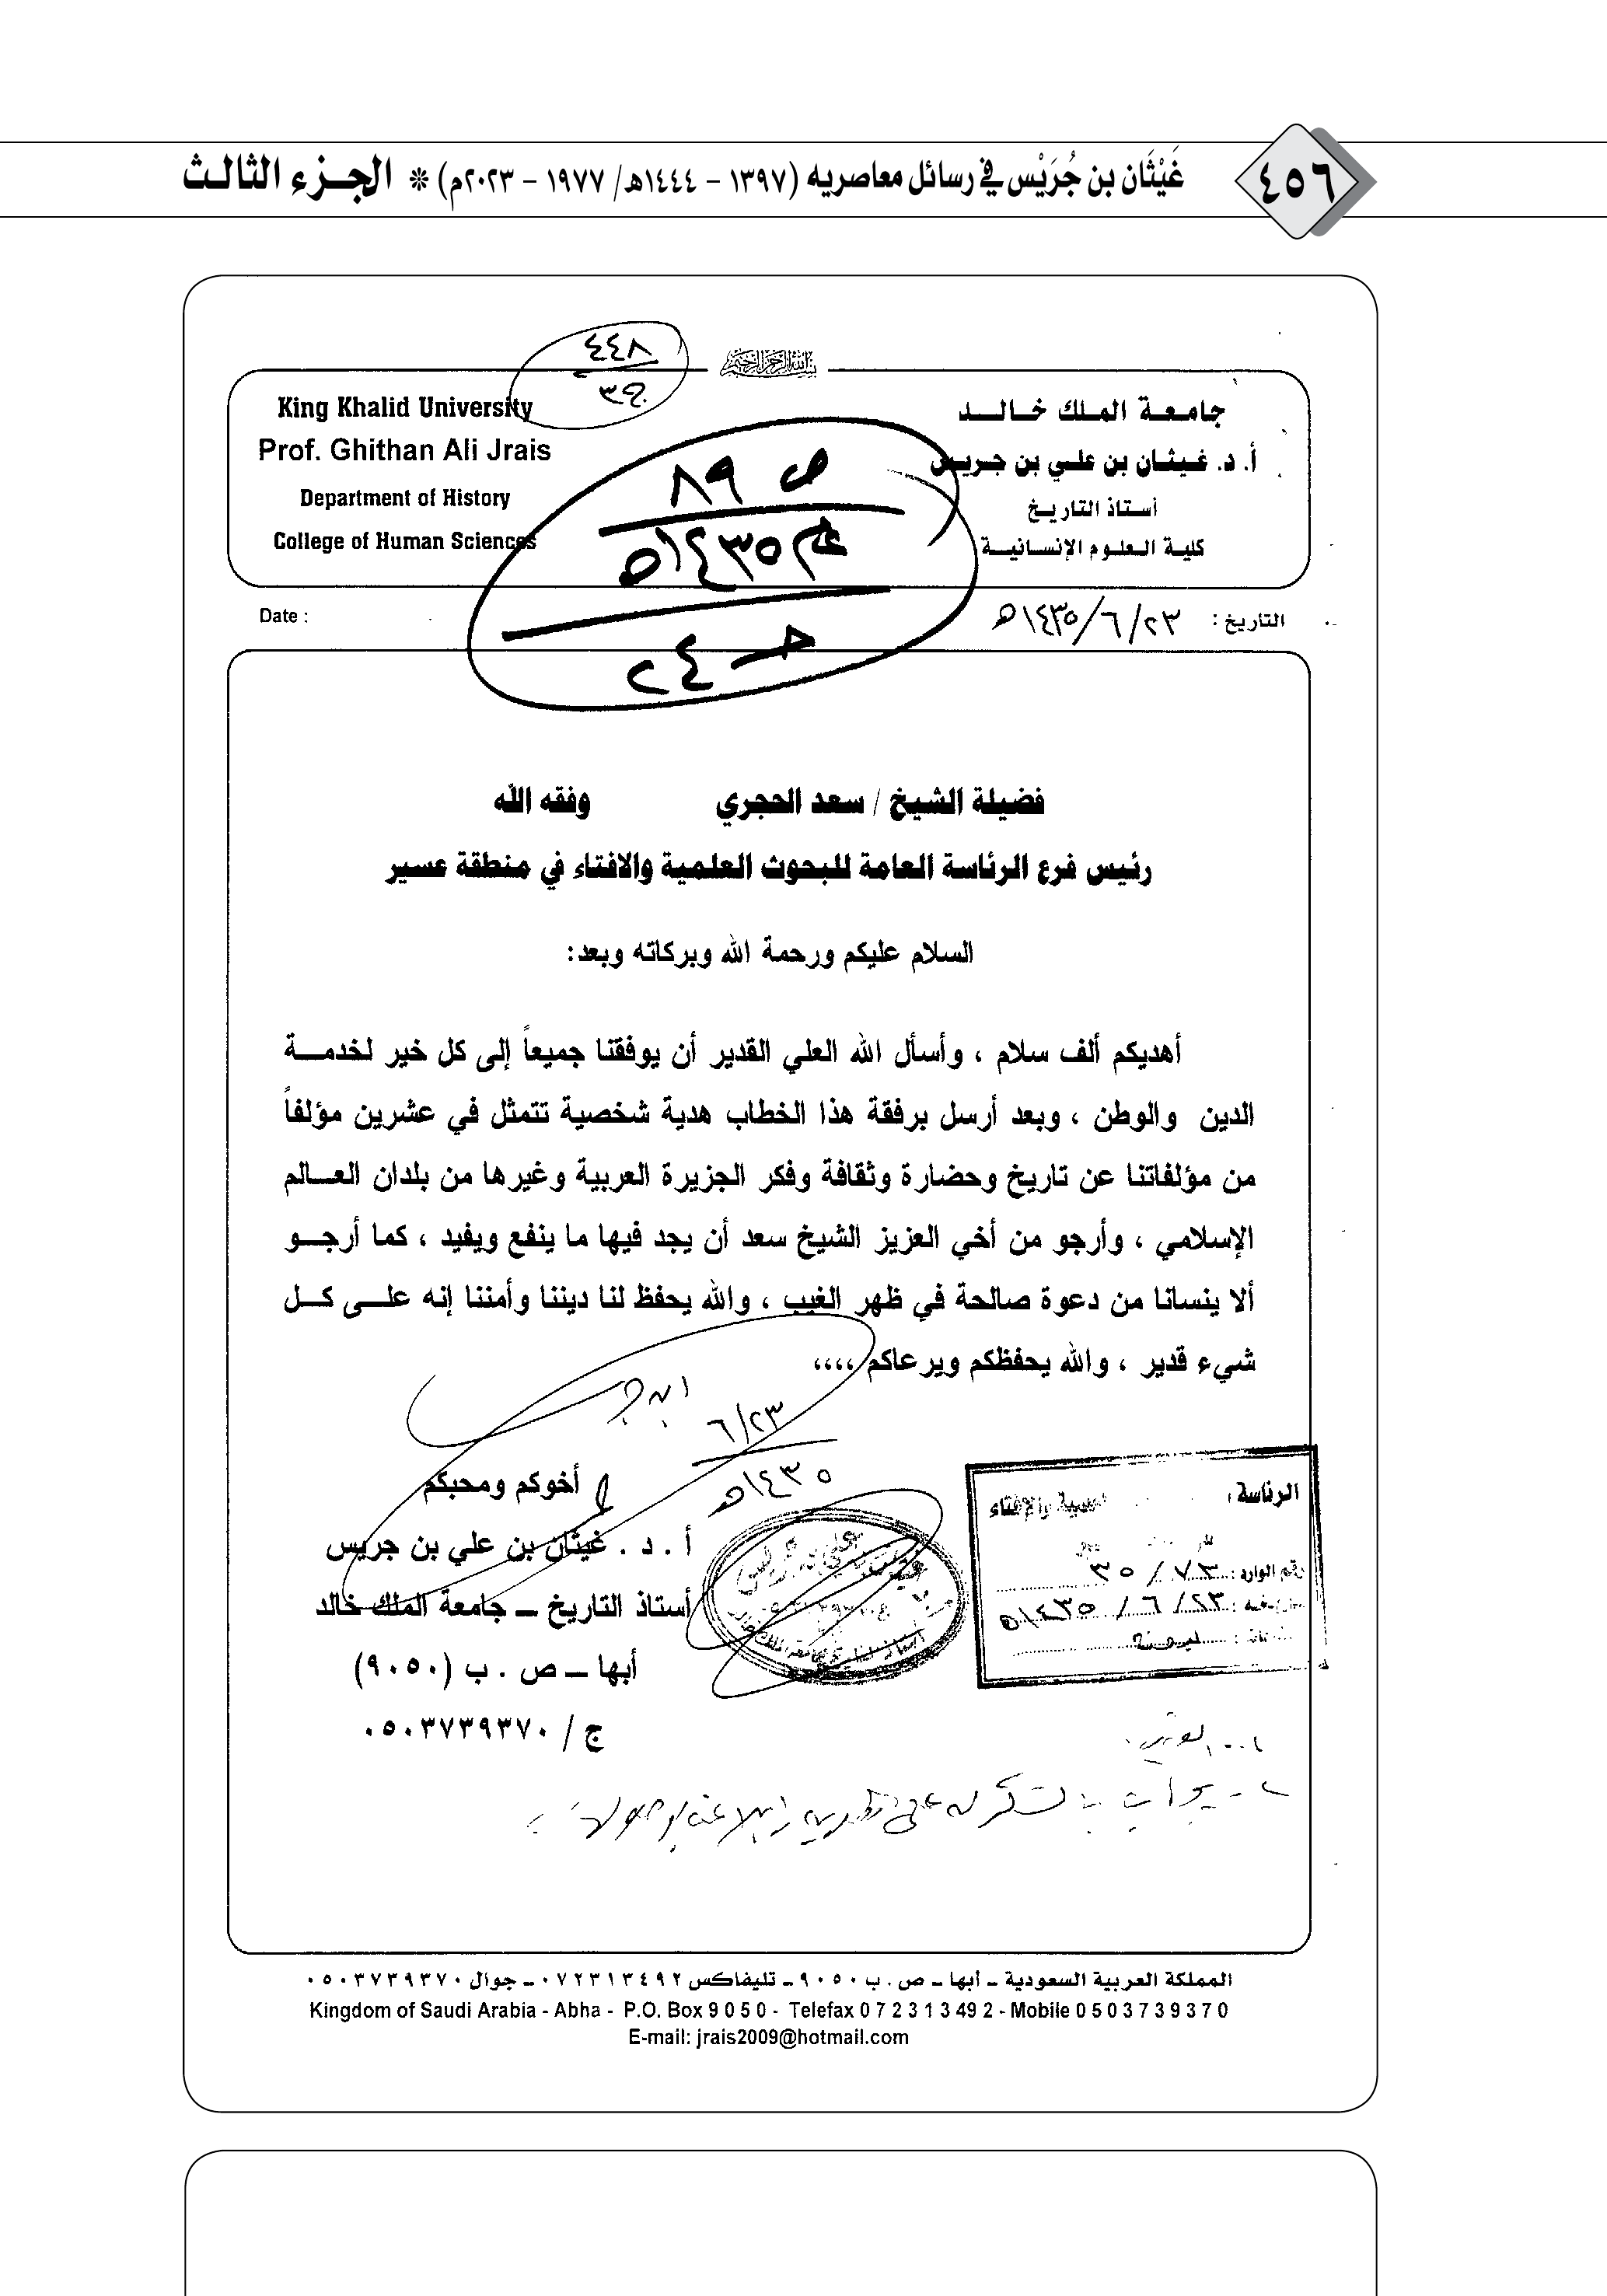 ٤٥٦
غَيْثَان بن جُرَيْس في رسائل معاصريه (١٣٩٧ - ١٤٤٤هـ/ ١٩٧٧ - ٢٠٢٣م) * الجزء الثالث
٤٤٨
ج٣
بسم الله الرحمن الرحيم
جامعة الملك خالد
أ. د. غيثان بن علي بن جريس
أستاذ التاريخ
كلية العلوم الإنسانية
King Khalid University
Prof. Ghithan Ali Jrais
Department of History
College of Human Sciences
ص ٨٩
عام ١٤٣٥هـ
جـ ٢٤
التاريخ : ٢٣/ ٦/ ١٤٣٥هـ
Date :
فضيلة الشيخ / سعد الحجري وفقه الله
رئيس فرع الرئاسة العامة للبحوث العلمية والافتاء في منطقة عسير
السلام عليكم ورحمة الله وبركاته وبعد:
أهديكم ألف سلام ، وأسأل الله العلي القدير أن يوفقنا جميعاً إلى كل خير لخدمة
الدين والوطن ، وبعد أرسل برفقة هذا الخطاب هدية شخصية تتمثل في عشرين مؤلفاً
من مؤلفاتنا عن تاريخ وحضارة وثقافة وفكر الجزيرة العربية وغيرها من بلدان العالم
الإسلامي ، وأرجو من أخي العزيز الشيخ سعد أن يجد فيها ما ينفع ويفيد ، كما أرجو
ألا ينسانا من دعوة صالحة في ظهر الغيب ، والله يحفظ لنا ديننا وأمننا إنه على كل
شيء قدير ، والله يحفظكم ويرعاكم ،،،،
ابن جريس
٢٣/ ٦
١٤٣٥هـ
أخوكم ومحبكم
أ . د . غيثان بن علي بن جريس
أستاذ التاريخ – جامعة الملك خالد
أبها – ص . ب (٩٠٥٠)
ج / ٠٥٠٣٧٣٩٣٧٠
الرئاسة والإفتاء
رقم الوارد : ٧٣/ ٣٥
٢٣/ ٦/ ١٤٣٥هـ
المملكة العربية السعودية – أبها – ص . ب ٩٠٥٠ – تليفاكس ٠٧٢٣١٣٤٩٢ – جوال ٠٥٠٣٧٣٩٣٧٠
Kingdom of Saudi Arabia - Abha - P.O. Box 9 0 5 0 - Telefax 0 7 2 3 1 3 49 2 - Mobile 0 5 0 3 7 3 9 3 7 0
E-mail: jrais2009@hotmail.com